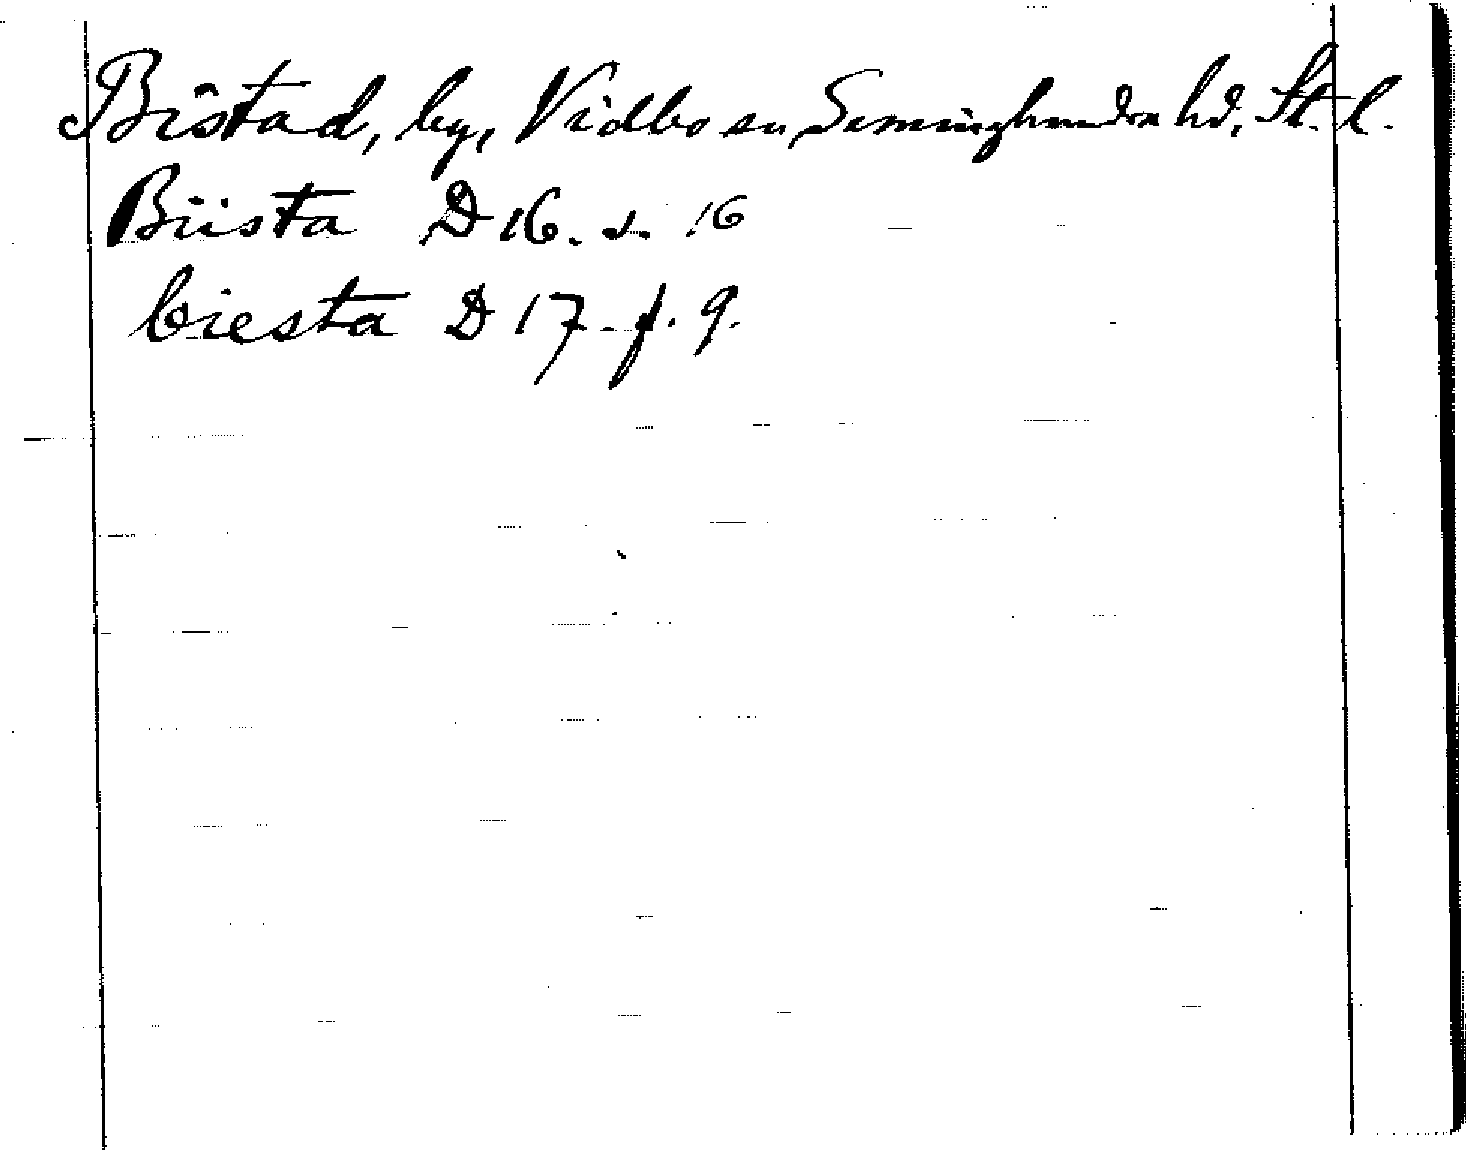 Bistad, by, Vidbo sn, Seminghundra hd, St. l.
Biista D 16. s. 16
biesta D 17 - f. 9.